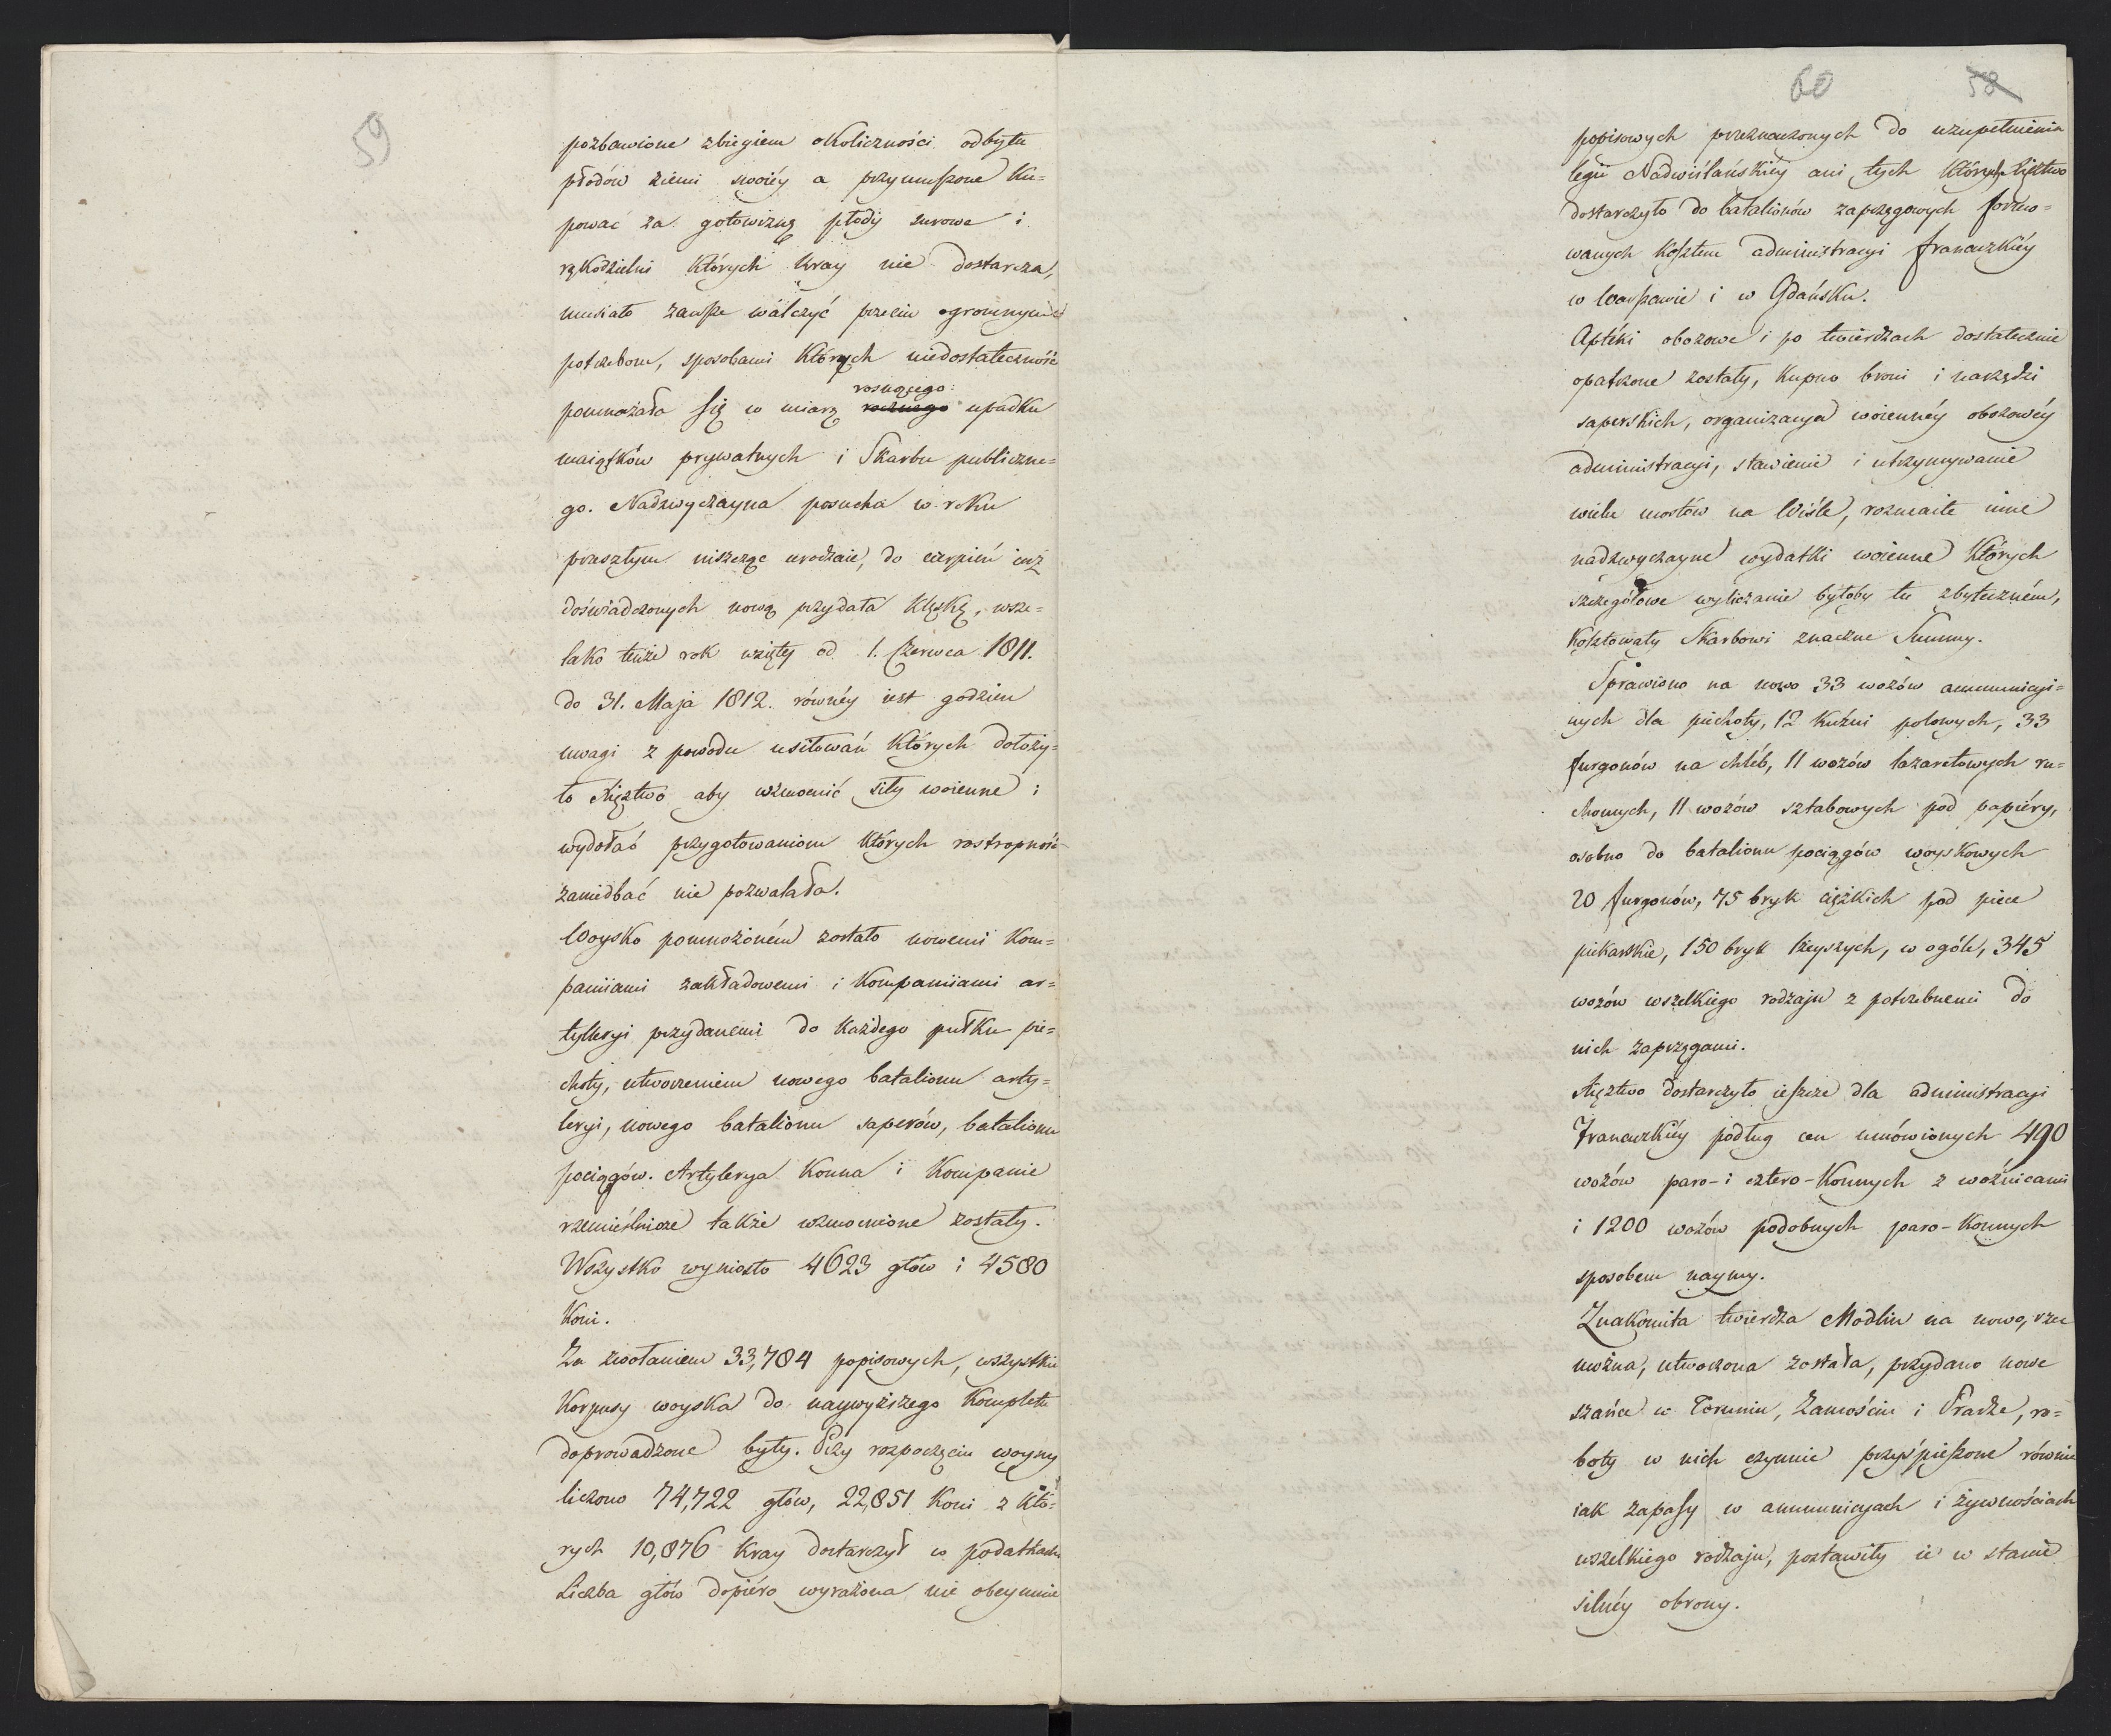 59
pozbawione zbiegiem okoliczności odbytu
płodów ziemi swoiéy a przymuszone ku=
pować za gotowiznę płody surowe i
rękodzielni których kray nie dostarcza,
musiało zawsze walczyć przeciw ogromnym
potrzebom, sposobami których niedostateczność
rosnącego
pomnażała się w miarę rocznego upadku
maiątków prywatnych i Skarbu publiczne=
go. Nadzwyczayna posucha w roku
przeszłym niszcząc urodzaie, do cierpień iuż
doświadczonych nową przydała klęskę, wsze=
lako tenże rok wzięty od 1. Czerwca 1811.
do 31. Maja 1812. równéy iest godzien
uwagi z powodu usiłowań których dołoży=
ło Xięztwo aby wzmocnić siły woienne i
wydołać przygotowaniom których rostropność
zaniedbać nie pozwalała.
Woysko pomnożoném zostało nowemi kom=
paniiami zakładowemi i kompaniiami ar=
tylleryi przydanemi do każdego pułku pie=
choty, utworzeniem nowego batalionu arty=
leryi, nowego batalionu saperów, batalionu
pociągów. Artylerya konna i kompanie
rzemieślnicze także wzmocnione zostały.
Wszystko wyniosło 4623 głów i 4580
koni.
Za zwołaniem 33,784 popisowych, wszystkie
korpusy woyska do naywyższego kompletu
doprowadzone były. Przy rozpoczęciu woyny
liczono 74,722 głów, 22,851 koni z któ=
rych 10,876 kray dostarczył w podatkach
Liczba głów dopiéro wyrażona nie obeymuie
60 58
popisowych przeznaczonych do uzupełnienia
legii Nadwiślańskiéy ani tych których Xięztwo
dostarczyło do batalionów zaprzęgowych formo=
wanych kosztem administracyi francuzkiéy
w Warszawie i w Gdańsku.
Aptéki obozowe i po twierdzach dostatecznie
opatrzone zostały, kupno broni i narzędzi
saperskich, organizacya woiennéy obozowéy
administracyi, stawienie i utrzymywanie
wielu mostów na Wiśle, rozmaite inne
nadzwyczayne wydatki woienne których
szczegółowe wyliczanie byłoby tu zbyteczném,
kosztowały Skarbowi znaczne Summy.
Sprawiono na nowo 33 wozów ammunicyi=
nych dla piechoty, 12 kuźni polowych, 33
furgonów na chléb, 11 wozów lazaretowych ru=
chomych, 11 wozów sztabowych pod papiéry,
osobno do batalionu pociągów woyskowych
20 furgonów, 75 bryk ciężkich pod piece
piekarskie, 150 bryk lżeyszych, w ogóle, 345
wozów wszelkiego rodzaju z potrzebnemi do
nich zaprzęgami.
Xięztwo dostarczyło ieszcze dla administracyi
Francuzkiéy podług cen umówionych 490
wozów paro- i cztero-konnych z woźnicami
i 1200 wozów podobnych paro-konnych
sposobem naymy.
Znakomita twierdza Modlin na nowo, rzec
można, utworzona została, przydano nowe
szańce w Toruniu, Zamościu i Pradze, ro=
boty w nich czynnie przyśpieszone równie
iak zapasy w ammunicyach i żywnościach
wszelkiego rodzaju, postawiły ie w stanie
silnéy obrony.